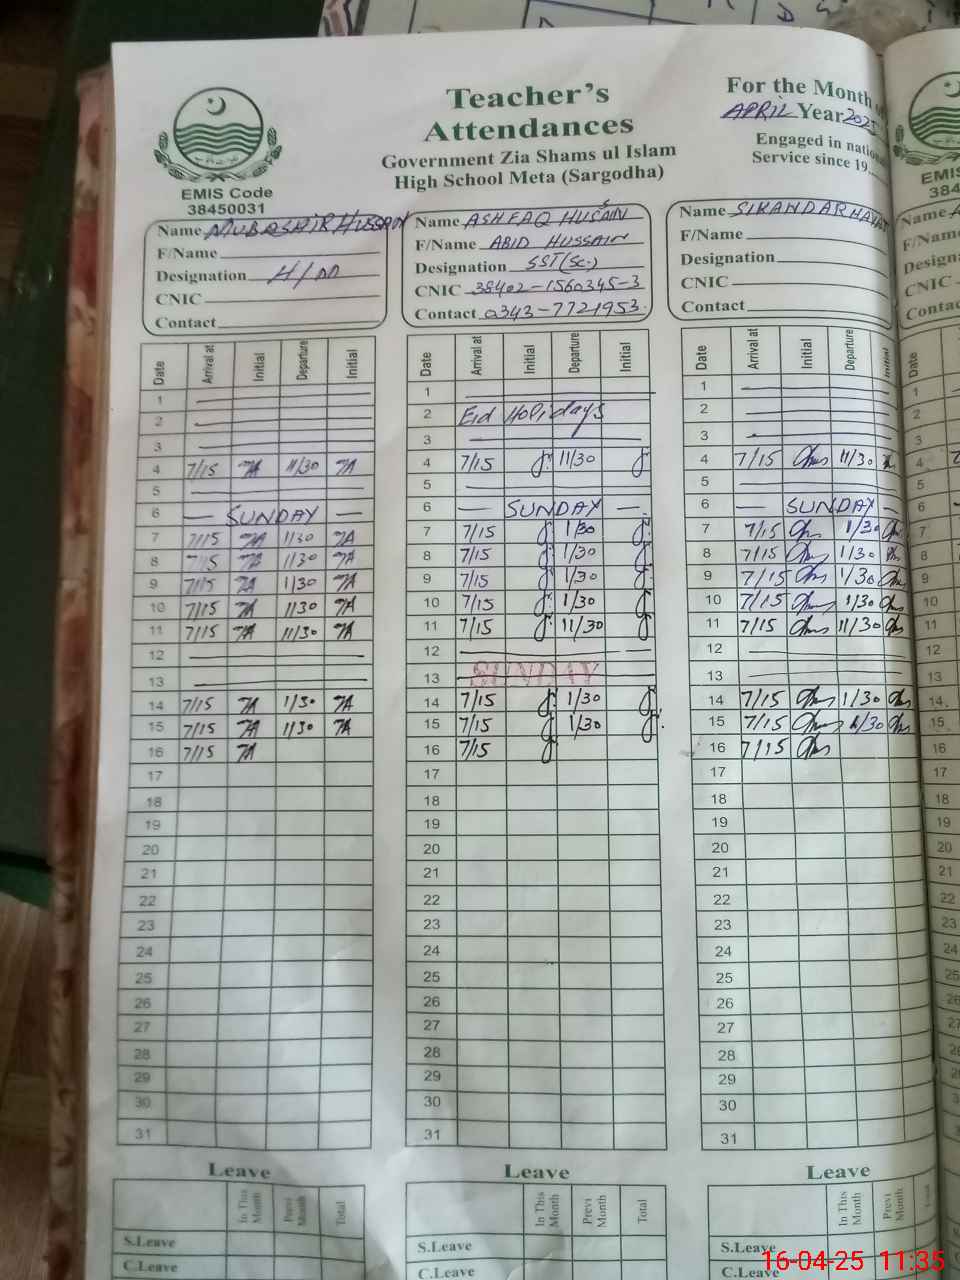 Teacher's
Attendances
Government Zia Shams ul Islam
High School Meta (Sargodha)
For the Month
APRIL Year 2025
Engaged in
Service since 19
EMIS Code
38450031
Name MUBASHIR HUSSAIN
F/Name
Designation H/M
CNIC
Contact
Date Arrival at Initial Departure Initial
1
2
3
4 7/15 11/30
5
6 — SUNDAY —
7 7/15 1/30
8 7/15 1/30
9 7/15 1/30
10 7/15 1/30
11 7/15 11/30
12
13
14 7/15 1/30
15 7/15 1/30
16 7/15
17
18
19
20
21
22
23
24
25
26
27
28
29
30
31
Leave
In This Month Previ Month Total
S.Leave
C.Leave
Name ASHFAQ HUSAIN
F/Name ABID HUSSAIN
Designation SST(SC.)
CNIC 38402-1560345-3
Contact 0343-7721953
Date Arrival at Initial Departure Initial
1
2 Eid Holidays
3
4 7/15 11/30
5
6 — SUNDAY —
7 7/15 1/30
8 7/15 1/30
9 7/15 1/30
10 7/15 1/30
11 7/15 11/30
12
13 SUNDAY
14 7/15 1/30
15 7/15 1/30
16 7/15
17
18
19
20
21
22
23
24
25
26
27
28
29
30
31
Leave
In This Month Previ Month Total
S.Leave
C.Leave
Name SIKANDAR HAYAT
F/Name
Designation
CNIC
Contact
Date Arrival at Initial Departure Initial
1
2
3
4 7/15 11/30
5
6 — SUNDAY —
7 7/15 1/30
8 7/15 1/30
9 7/15 1/30
10 7/15 1/30
11 7/15 11/30
12
13
14 7/15 1/30
15 7/15 1/30
16 7/15
17
18
19
20
21
22
23
24
25
26
27
28
29
30
31
Leave
In This Month Previ Month
S.Leave
C.Leave
16-04-25 11:35